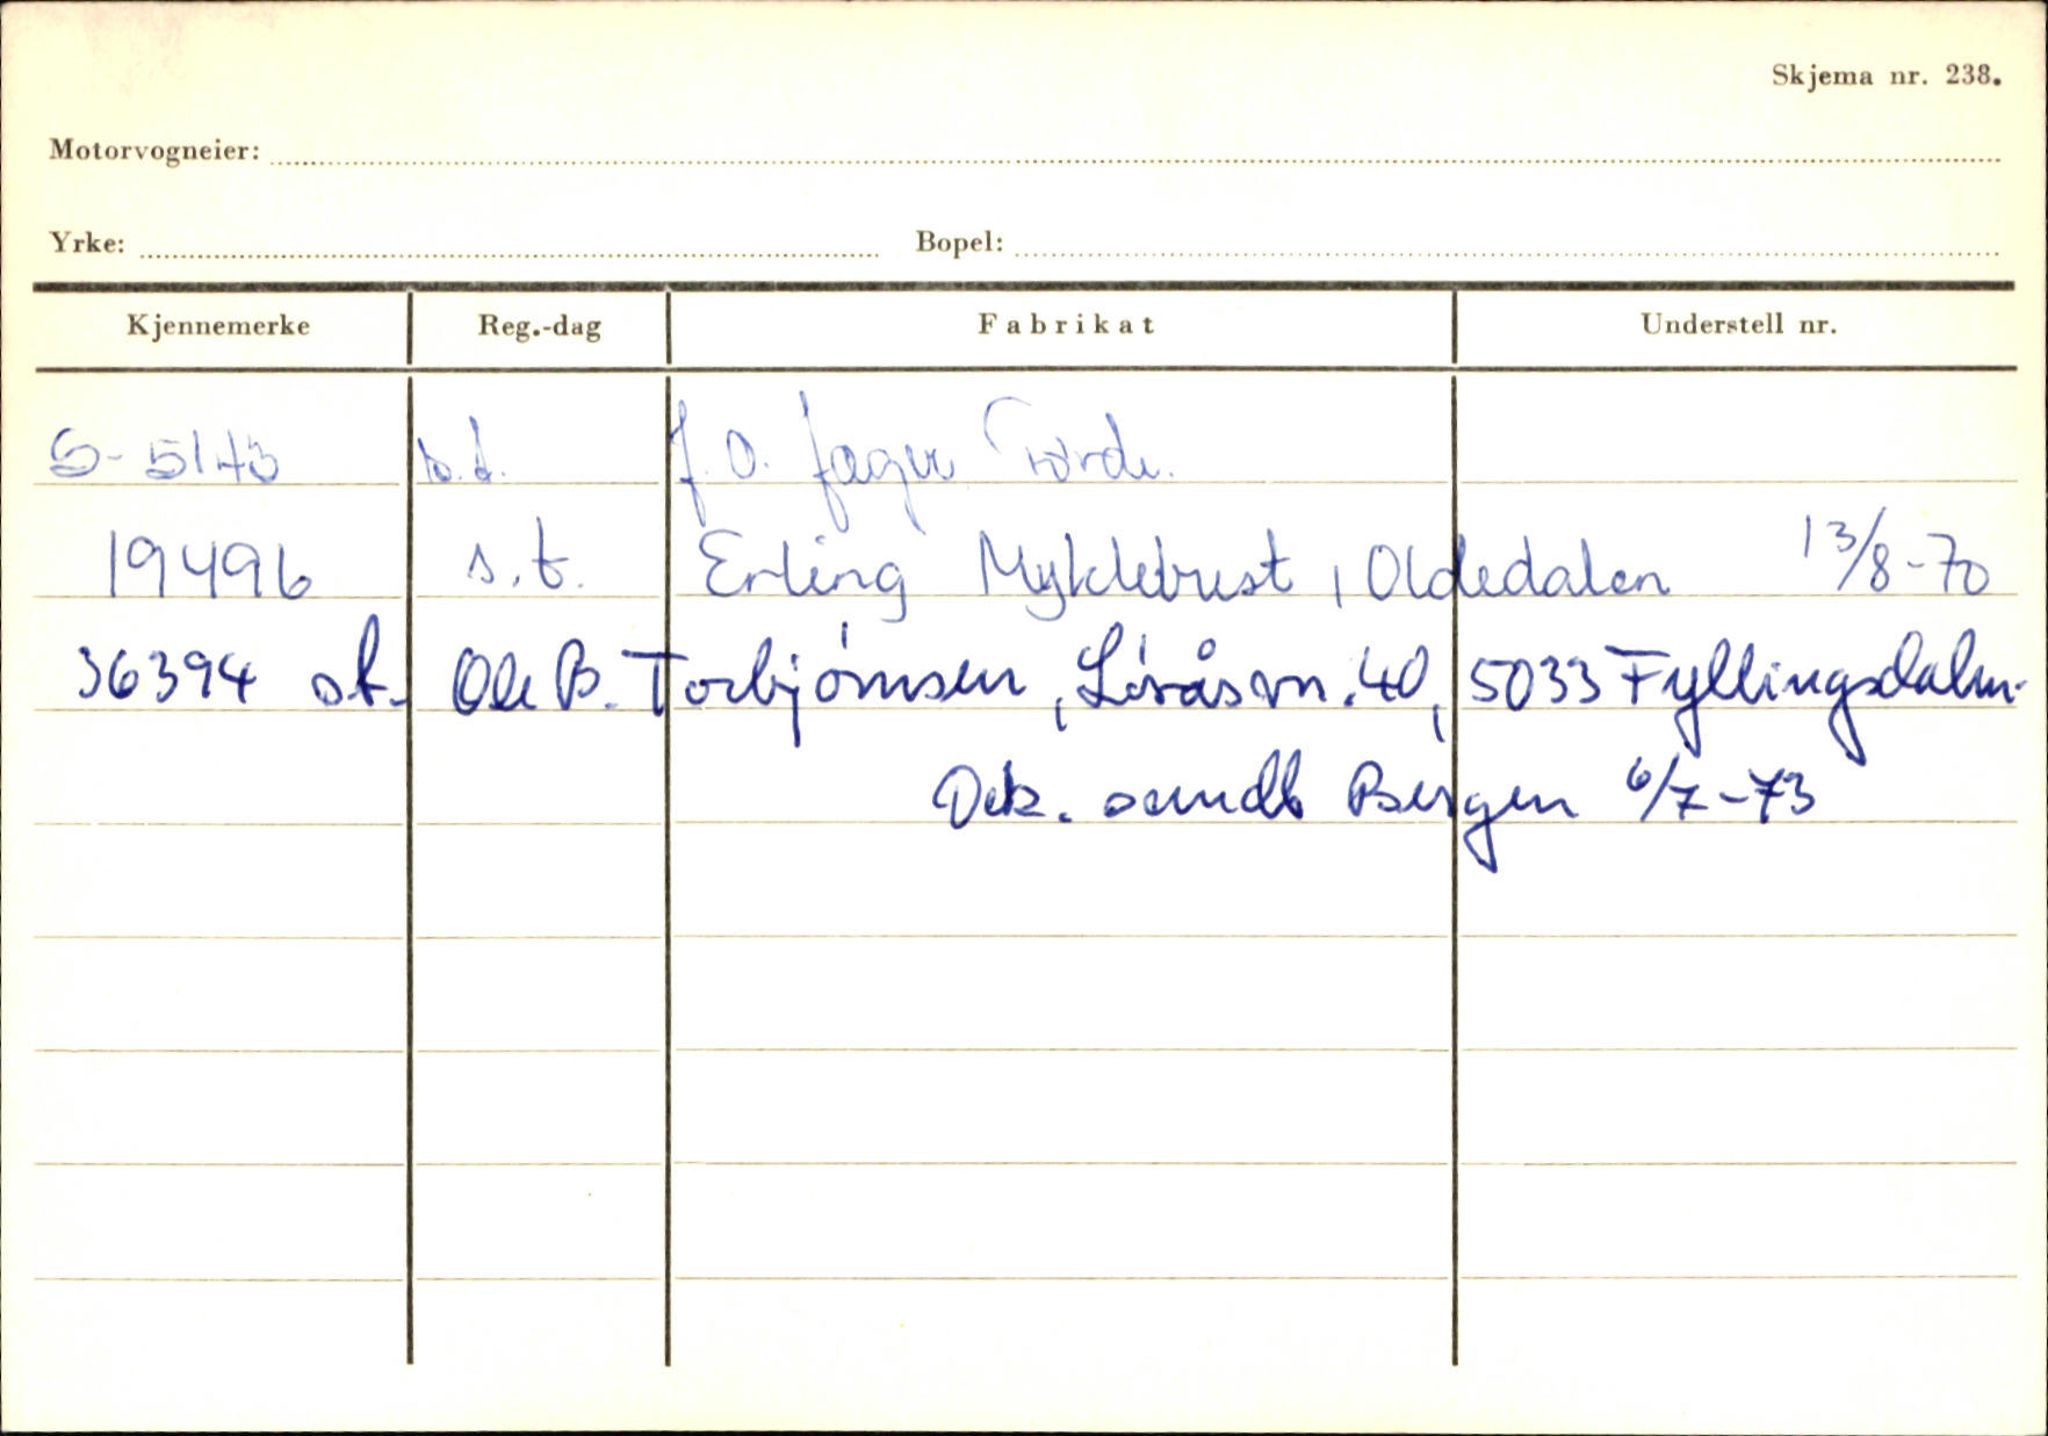 Skjema nr. 238.
Motorvogneier:
Yrke: Bopel:
Kjennemerke Reg.-dag Fabrikat Understell nr.
S-5173 s.t. J.O. Førde.
19496 s.t. Erling Myklebust, Oldedalen 13/8-70
36394 st. Ole B. Torbjørnsen, Løvåsvn. 40, 5033 Fyllingsdalen.
Dek. sendt Bergen 6/7-73